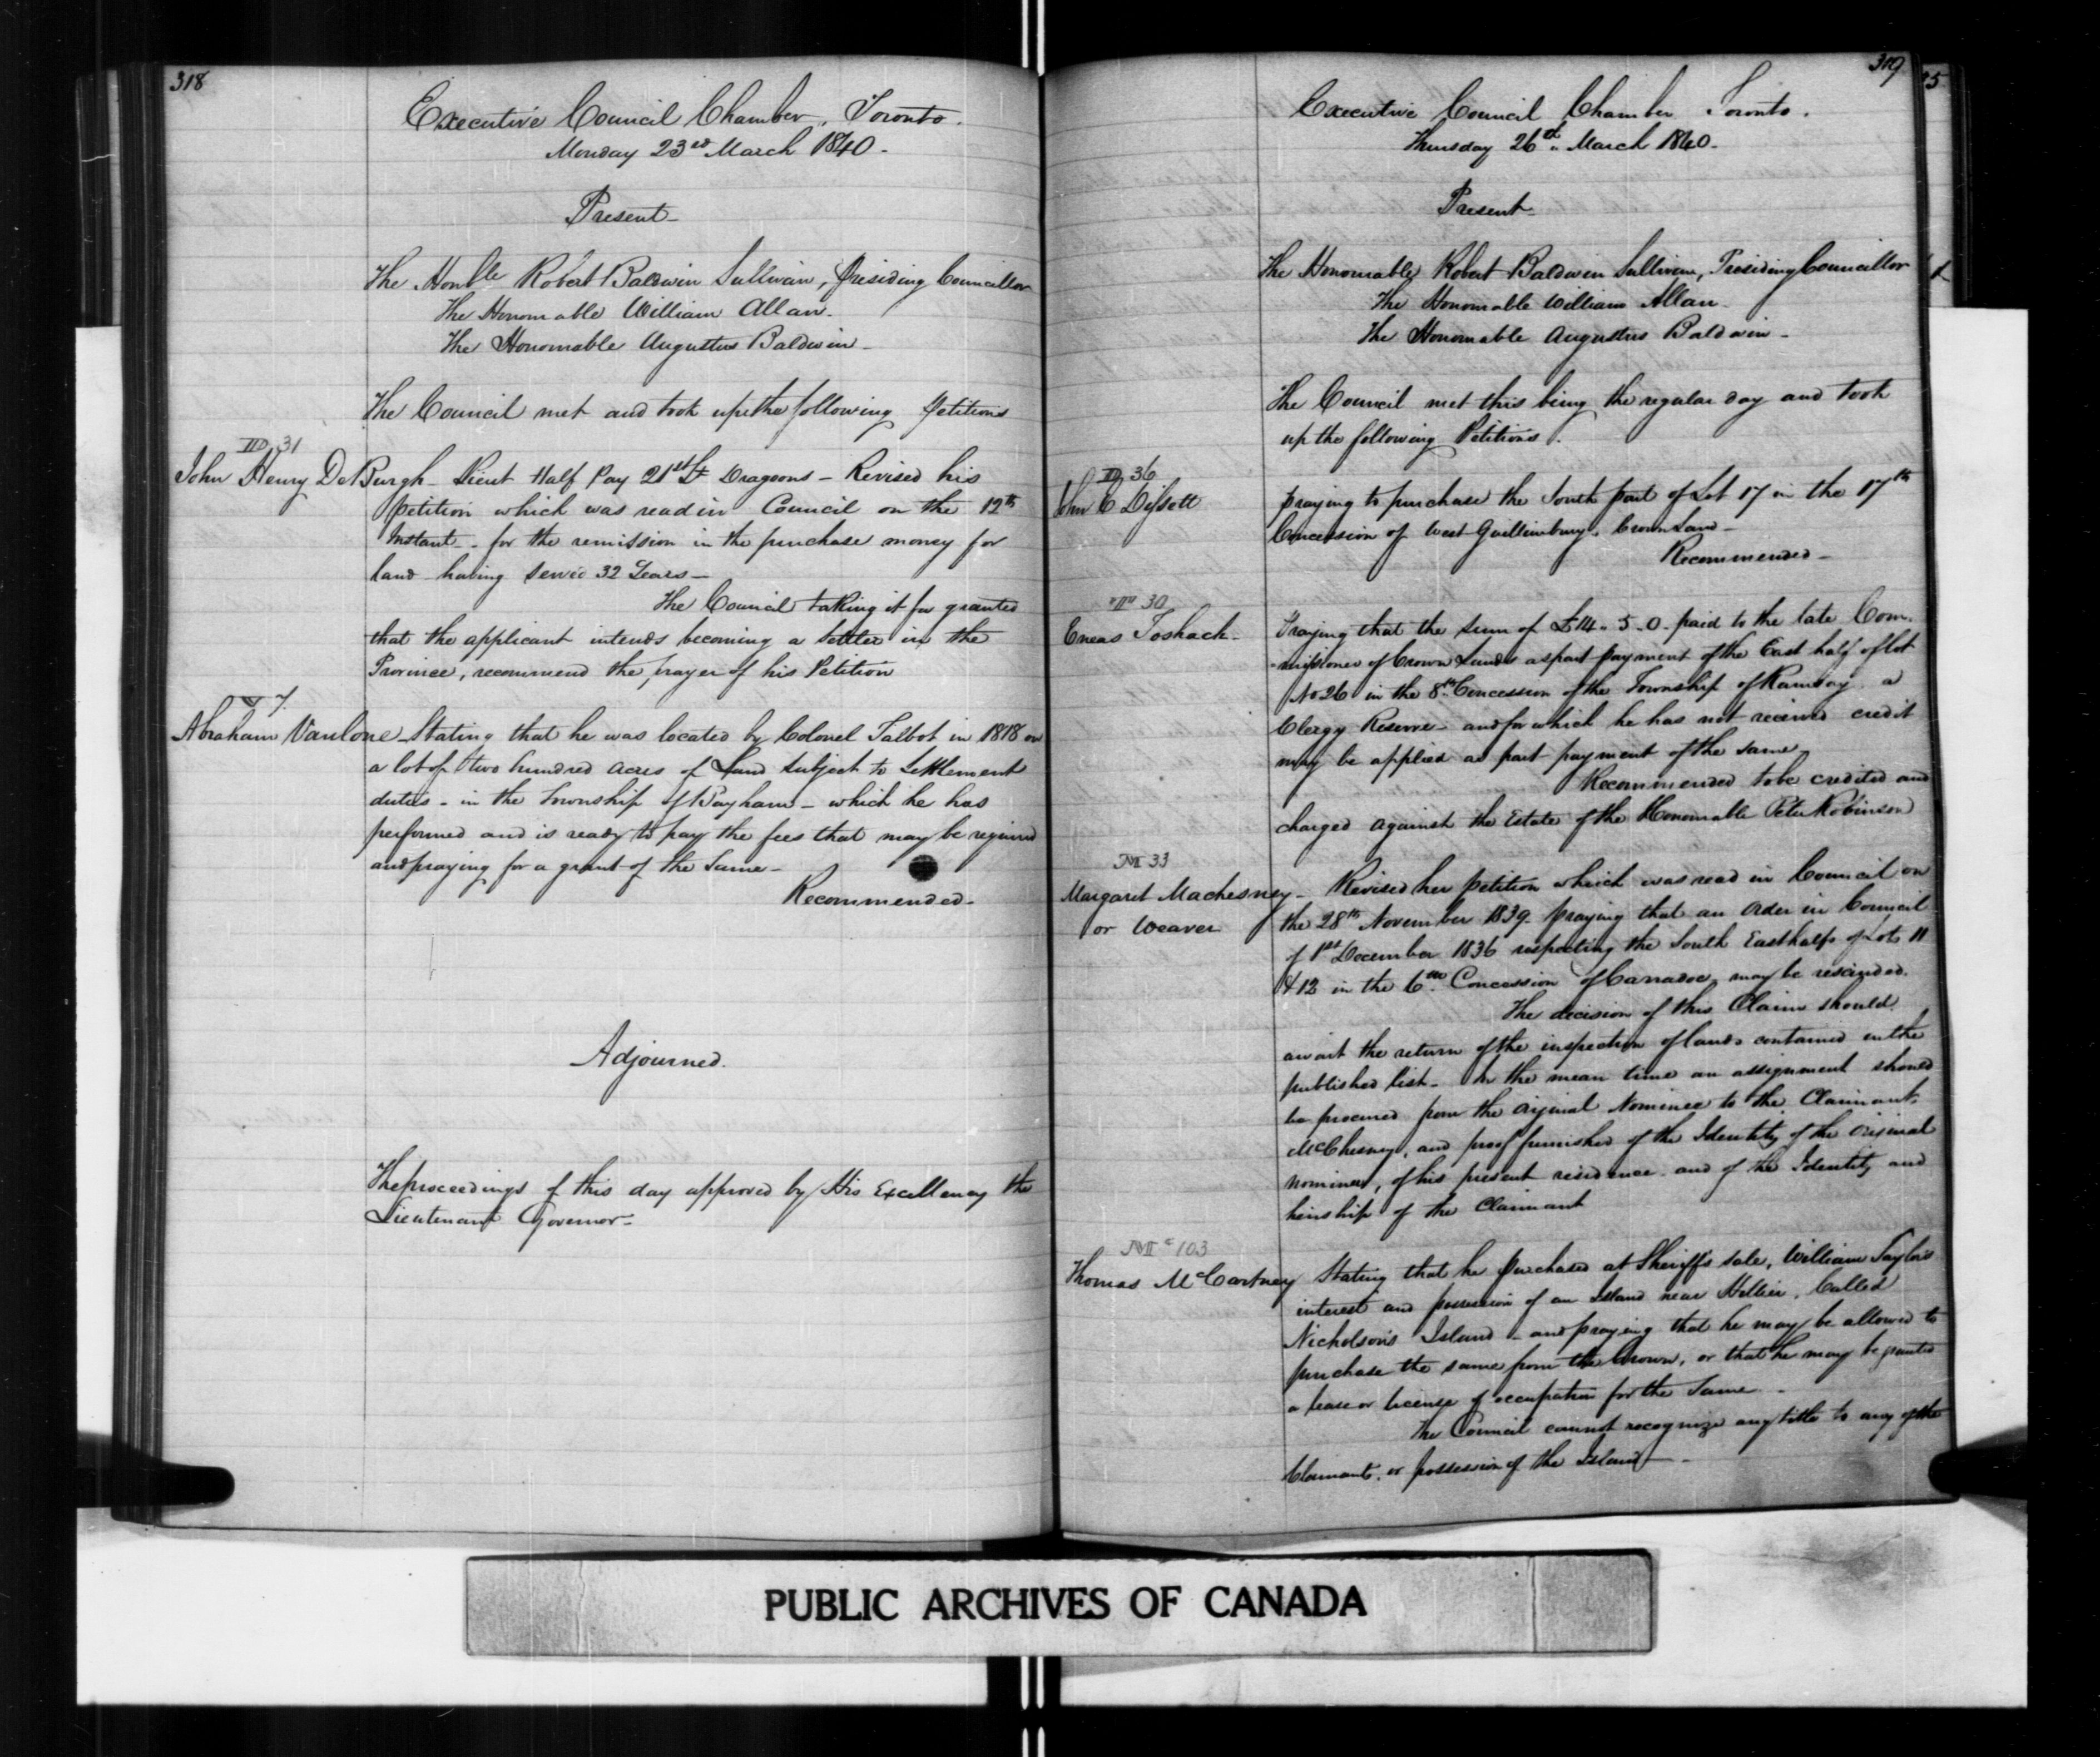 318
Executive Council Chamber, Toronto.
Monday 23rd March 1840.
Present
The Honble Robert Baldwin Sullivan, Presiding Councillor
The Honourable William Allan.
The Honourable Augustus Baldwin
The Council met and took up the following Petitions
D 31
John Henry DeBurgh Lieut Half Pay 21st Lt Dragoons - Revised his
petition which was read in Council on the 12th
Instant - for the remission in the purchase money for
land having served 32 Years -
The Council taking it for granted
that the applicant intends becoming a settler in the
Province, recommend the prayer of his Petition
V 7
Abraham Vanlone Stating that he was located by Colonel Talbot in 1818 on
a lot of two hundred acres of Land subject to Settlement
duties - in the Township of Bayham - which he has
performed and is ready to pay the fees that may be required
and praying for a grant of the Same -
Recommended -
Adjourned.
The proceedings of this day approved by His Excellency the
Lieutenant Governor -
319
Executive Council Chamber Toronto.
Thursday 26th March 1840.
Present
The Honourable Robert Baldwin Sullivan, Presiding Councillor
The Honourable William Allan
The Honourable Augustus Baldwin -
The Council met this being the regular day and took
up the following Petitions.
D 36
John C Dissett
praying to purchase the South part of Lot 17 in the 17th
Concession of West Guillimbury, Crown Land -
Recommended -
T 30
Eneas Toshack -
Praying that the sum of £14 - 5 - 0 - paid to the late Com-
-missioner of Crown Lands as part payment of the East half of lot
No 26 in the 8th Concession of the Township of Ramsay a
Clergy Reserve - and for which he has not received credit
may be applied as part payment of the same
Recommended to be credited and
charged against the Estate of the Honourable Peter Robinson
M 33
Margaret Machesney -
or Weaver
Revised her petition which was read in Council on
the 28th November 1839. praying that an Order in Council
of 1st December 1836 respecting the South East halfs of Lots 11
& 12 in the 6th Concession of Carradoc may be rescinded.
The decision of this Claim should
await the return of the inspection of lands contained in the
published list - In the mean time an assignment should
be procured from the original Nominee to the Claimant,
McChesney, and proof furnished of the Identity of the original
nominee, of his present residence and of the Identity and
heirship of the Claimant
M c 103
Thomas McCartney Stating that he purchased at Sheriff's sale, William Taylor's
interest and possession of an Island near Hillier, Called
Nicholson's Island - and praying that he may be allowed to
purchase the same from the Crown, or that he may be granted
a lease or license of occupation for the Same -
The Council cannot recognize any title to any of the
Claimants, or possession of the Island -
PUBLIC ARCHIVES OF CANADA